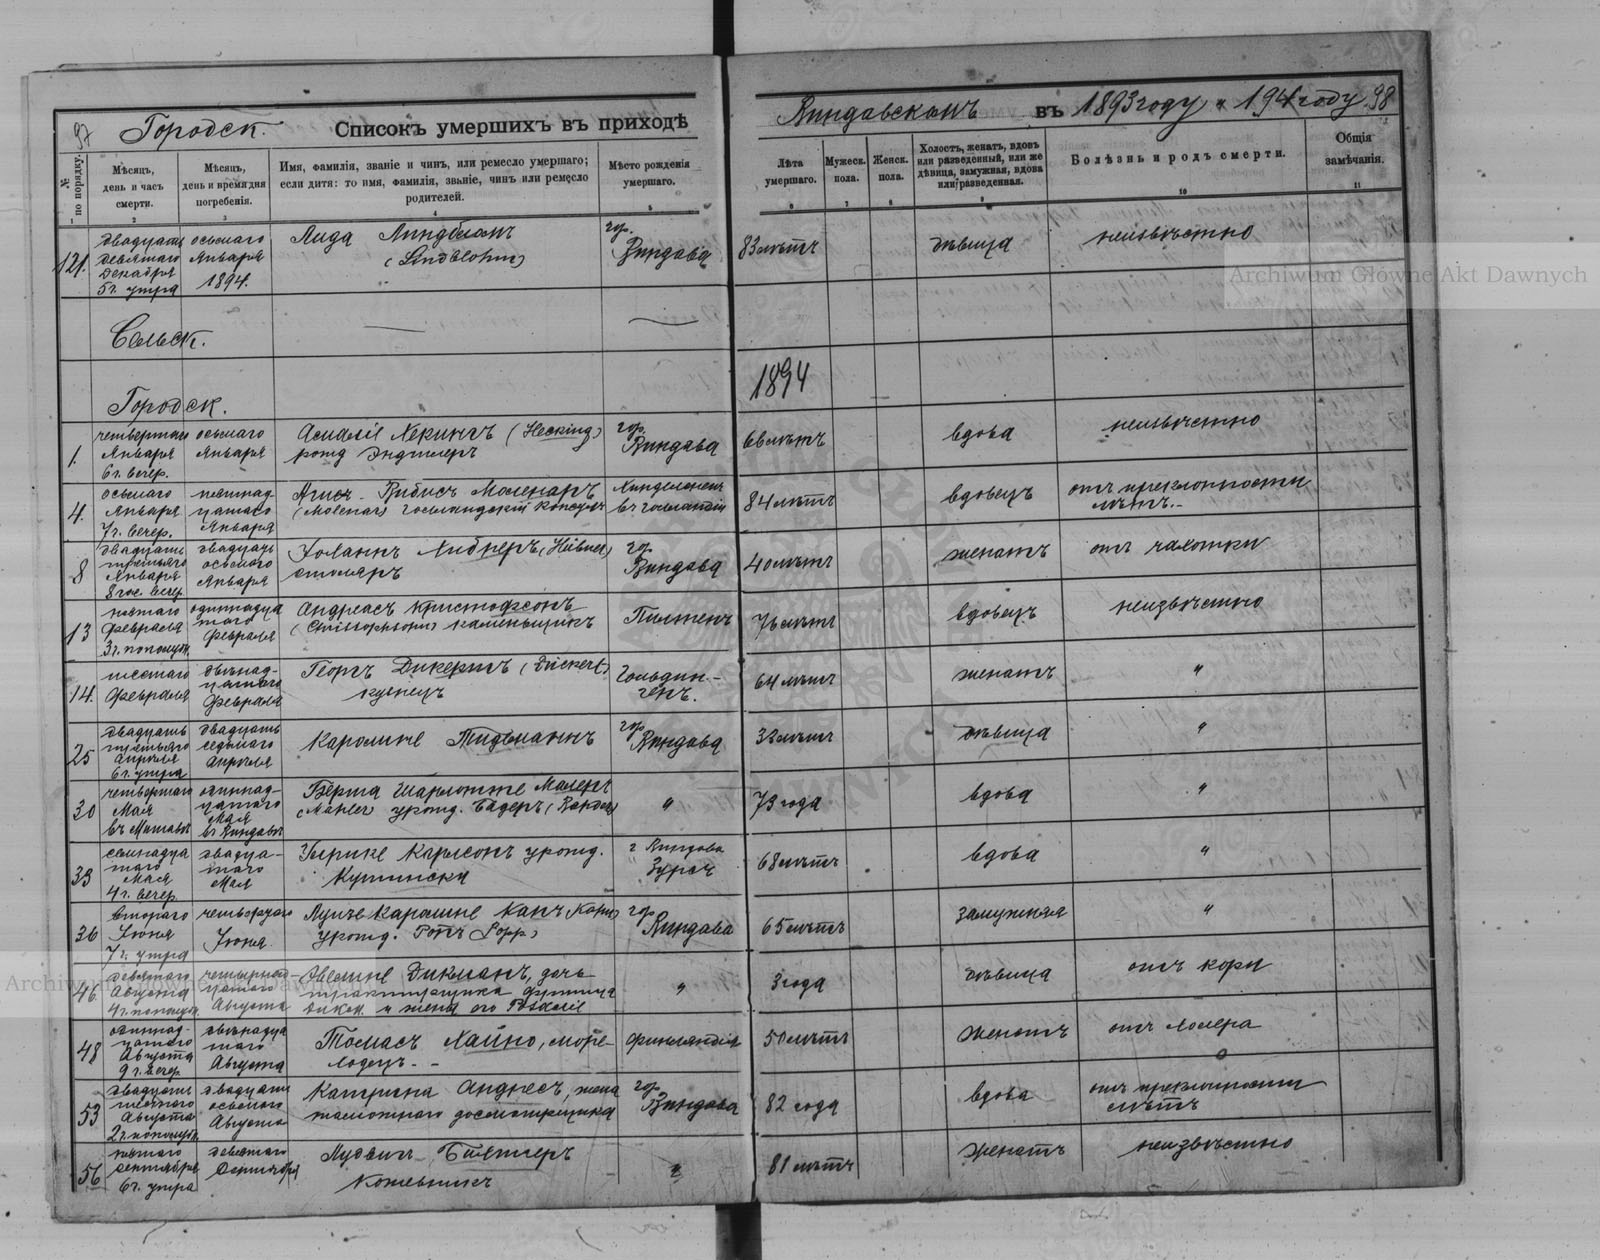 97
Городск.
Списокъ умершихъ въ приходѣ
Виндавскомъ въ 1893 году и 1894 году 98
№ по порядку.
Мѣсяцъ, день и часъ смерти.
Мѣсяцъ, день и время дня погребенія.
Имя, фамилія, званіе и чинъ, или ремесло умершаго; если дитя: то имя, фамилія, званіе, чинъ или ремесло родителей.
Мѣсто рожденія умершаго.
Лѣта умершаго.
Мужеск. пола.
Женск. пола.
Холостъ, женатъ, вдовъ или разведенный, или же дѣвица, замужная, вдова или разведенная.
Болѣзнь и родъ смерти.
Общія замѣчанія.
1 2 3 4 5 6 7 8 9 10 11
121.
двадцать девятаго Декабря 5 ч. утра
осьмаго Января 1894.
Аида Линдбломъ (Lindblohm)
гор. Виндава
83 лѣтъ
дѣвица
неизвѣстно
Сельск.
1894
Городск.
1.
четвертаго Января 6 ч. вечер.
осьмаго Января
Амалія Хекингъ (Hecking) рожд
гор. Виндава
68 лѣтъ
вдова
неизвѣстно
4.
осьмаго Января 7 ч. вечер.
пятнадцатаго Января
Моленаръ (Molenar) голландскій консулъ
въ Голландіи
84 лѣтъ
вдовецъ
отъ преклонности лѣтъ.
8
двадцать третьяго Января 8 час. вечер
двадцать осьмаго Января
Іоганнъ Хибнеръ (Hübner) столяръ
гор. Виндава
40 лѣтъ
женатъ
отъ чахотки
13
пятаго Февраля 3 ч. пополудн.
одиннадцатаго Февраля
Андреасъ Кристофсонъ (Christophsohn) каменьщикъ
Пильтенъ
76 лѣтъ
вдовецъ
неизвѣстно
14.
шестаго Февраля
двѣнадцатаго Февраля
Георгъ Дикертъ (Dückert) кузнецъ
Гольдингенъ.
64 лѣтъ
женатъ
"
25
двадцать третьяго Апрѣля 6 ч. утра
двадцать седьмаго Апрѣля
Каролине Тидеманнъ
гор. Виндава
лѣтъ
дѣвица
"
30
четвертаго Мая въ Митавѣ
одиннадцатаго Мая въ Виндавѣ
Берта Шарлотте Малеръ (Mahler) урожд. Бадеръ
"
73 года
вдова
"
33
семнадцатаго Мая 4 ч. вечер.
двадцатаго Мая
Ульрике Карлсонъ урожд.
г Виндава
68 лѣтъ
вдова
"
36
втораго Іюня 7 ч. утра
четвертаго Іюня
Луизе Каролине Капъ урожд. Ропъ (Ropp)
гор. Виндава
65 лѣтъ
замужняя
"
46.
девятаго Августа 4 ч. пополудн.
четырнадцатаго Августа
Эвелине Дикманъ, дочь трактирщика Фрица Дикм. и жены его Розаліи
"
3 года
дѣвица
отъ кори
48
одиннадцатаго Августа 9 ч. вечер.
двѣнадцатаго Августа
Томасъ Хайно, мореходецъ
Финляндія
50 лѣтъ
женатъ
отъ холера
53
двадцать Августа 2 ч. пополудн.
двадцать осьмаго Августа
Катрина Андресъ, жена таможеннаго досмотрщика
гор. Виндава
82 года
вдова
отъ преклонности лѣтъ
56
пятаго Сентября 6 ч. утра
девятаго Сентября
Лудвигъ кожевникъ
"
81 лѣтъ
женатъ
неизвѣстно
Archiwum Główne Akt Dawnych
Archiwum Główne Akt Dawnych